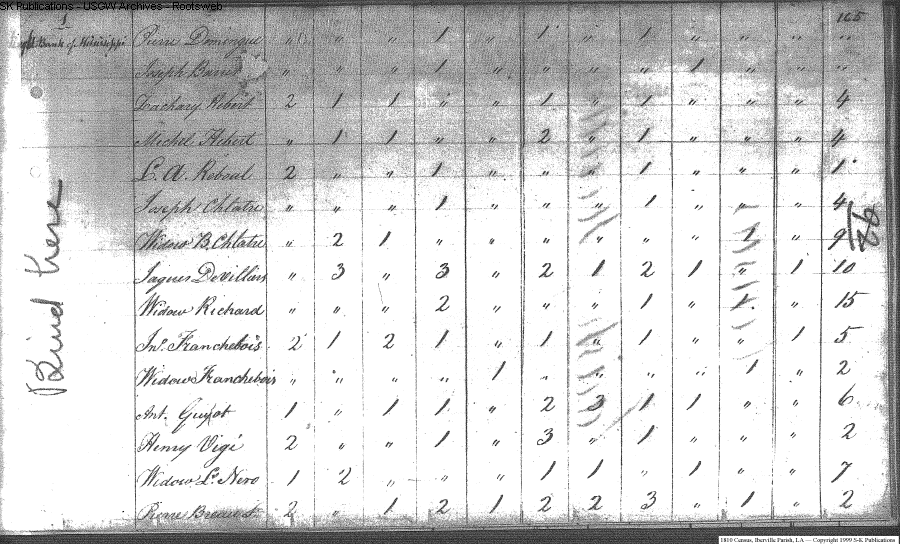 SK Publications - USGW Archives - Rootsweb
165
Bank of Mississippi
Pierre Domengue " " " 1 " 1 " 1 " " " "
Joseph " " " 1 " " " " 1 " " "
Zachary Hebert 2 1 1 " " 1 " 1 " " " 4
Michel Hebert " 1 1 " " 2 " 1 " " " 4
L. A. Reboul 2 " " 1 " " " 1 " " " 1
Joseph Chlatre " " " 1 " " " 1 " " " 4
Widow B. Chlatre " 2 1 " " " " " " 1 " 9
26
Jaques Devilliers " 3 " 3 " 2 1 2 1 " 1 10
Widow Richard " " " 2 " " " 1 " 1 " 15
Jno. Franchebois 2 1 2 1 " 1 " 1 " " 1 5
Widow Franchebois " " " " 1 " " " " 1 " 2
Ant. Guyot 1 " 1 1 " 2 3 1 1 " " 6
Henry Vigé 2 " " 1 " 3 " 1 " " " 2
Widow Le Nero 1 2 " " " 1 1 " 1 " " 7
Pierre 2 " 1 2 1 2 2 3 " 1 " 2
Bind here
1810 Census, Iberville Parish, LA — Copyright 1999 S-K Publications